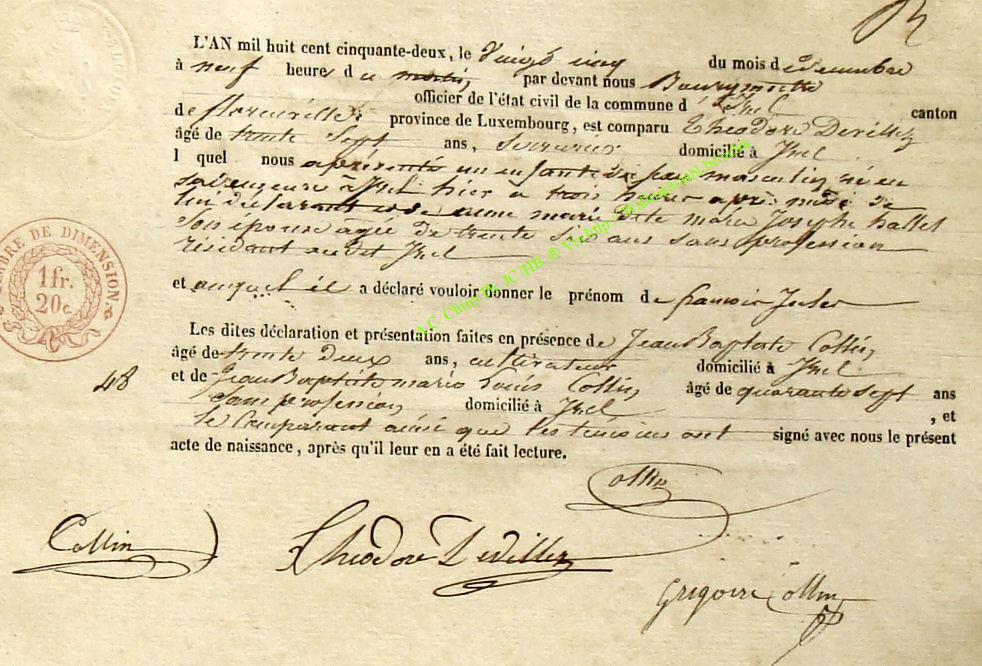 L'AN mil huit cent cinquante-deux, le Vingt cinq du mois de Decembre
à neuf heures du matin, par devant nous Bourgmestre
officier de l'état civil de la commune d'Izel canton
de florenville, province de Luxembourg, est comparu Théodore Devillez
âgé de trente Sept ans, Serrurier domicilié à Izel
lequel nous a présenté un enfant de sexe masculin né en
à Izel hier à trois heures après midi de
lui déclarant et de marie Joseph hallet
son épouse agée de trente six ans sans profession
résidant audit Izel
et auquel il a déclaré vouloir donner le prénom de francois Jules
Les dites déclaration et présentation faites en présence de Jean Baptiste Collin,
âgé de trente deux ans, cultivateur domicilié à Izel
48
et de Jean Baptiste marie Louis Collin, âgé de quarante sept ans
sans profession, domicilié à Izel, et
le Comparant ainsi que les témoins ont signé avec nous le présent
acte de naissance, après qu'il leur en a été fait lecture.
TIMBRE DE DIMENSION.
1 fr.
20 c.
Collin
Collin Théodore Devillez
Grégoire Collin